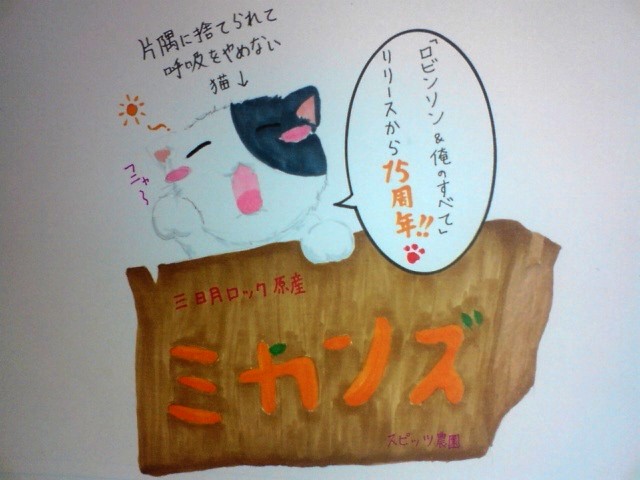 片隅に捨てられて
呼吸をやめない
猫↓
フニャ〜
「ロビンソン&俺のすべて」
リリースから15周年!!
三日月ロック原産
ミカンズ
スピッツ農園